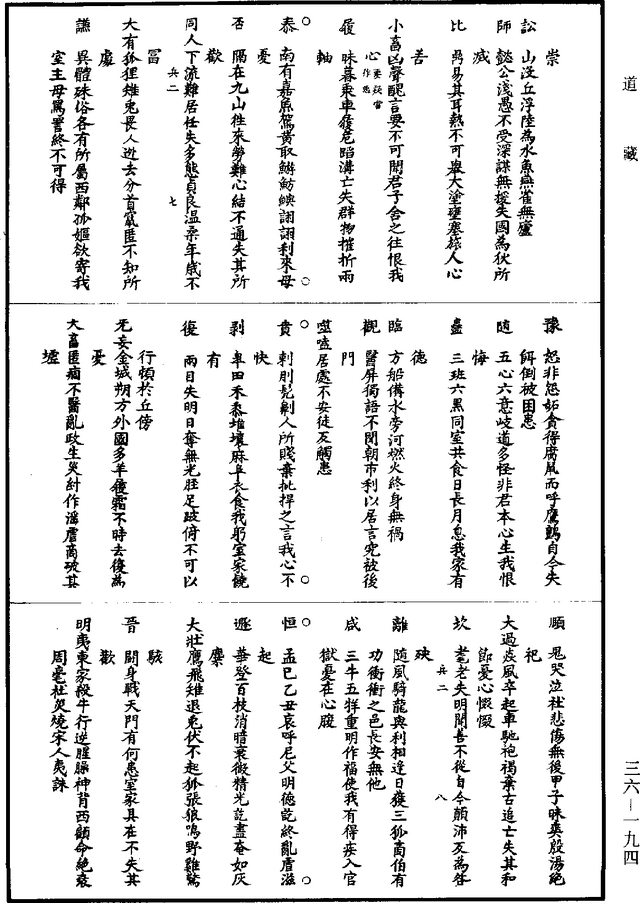 道藏
崇
訟 山沒丘浮陸為水魚燕雀無廬
師 懿公淺愚不受深謀無援失國為狄所
滅
比 鬲易其耳熱不可舉大塗壅塞旅人心
苦
小畜凶聲醜言要不可聞君子舍之往恨我
心要疑當作惡
履 昧暮乘車履危蹈溝亡失群物摧折兩
軸
泰 南有嘉魚駕黃取鰌魴鱮詡詡利來毋
憂
否 隔在九山往來勞難心結不通失其所
歡
兵二 七
同人下流難居任失多態貞良温柔年歲不
富
大有狐狸雉兔畏人逃去分首竄匿不知所
處
謙 異體殊俗各有所屬西鄰孤嫗欲寄我
室主母罵詈終不可得
豫 怒非怨妬貪得腐鼠而呼鷹鷂自令失
餌倒被困患
隨 五心六意岐道多怪非君本心生我恨
悔
蠱 三班六黑同室共食日長月息我家有
德
臨 方船備水旁河燃火終身無禍
觀 醫屏獨語不聞朝市利以居言究被後
門
噬嗑居處不安徒反觸患
賁 刺刖髡劓人所賤棄批捍之言我心不
快
剥 阜田禾黍堆壤麻阜衣食我躬室家饒
有
復 兩目失明日奪無光脛足跛俯不可以
行頓於丘傍
无妄金城朔方外國多羊履霜不時去復為
憂
大畜匿病不醫亂政生災紂作淫虐商破其
墟
頤 鬼哭泣社悲傷無後甲子昧爽殷湯絕
祀
大過焱風卒起車馳袍褐棄古追亡失其和
節憂心惙惙
坎 耄老失明聞善不從自令顛沛反為咎
兵二 八
殃
離 隨風騎龍與利相逢日獲三狐商伯有
功衝衝之邑長安無他
咸 三牛五牸重明作福使我有得疾入官
獄憂在心腹
恒 孟巳乙丑哀呼尼父明德訖終亂虐滋
起
遯 華登百枝消暗衰微精光訖盡奄如灰
糜
大壯鷹飛雉退兔伏不起狐張狼鳴野雞驚
駭
晉 鬭身戰天門有何患室家具在不失其
歡
明夷東家殺牛行逆腥臊神背西顧命絕衰
周亳社災燒宋人夷誅
三六—一九四